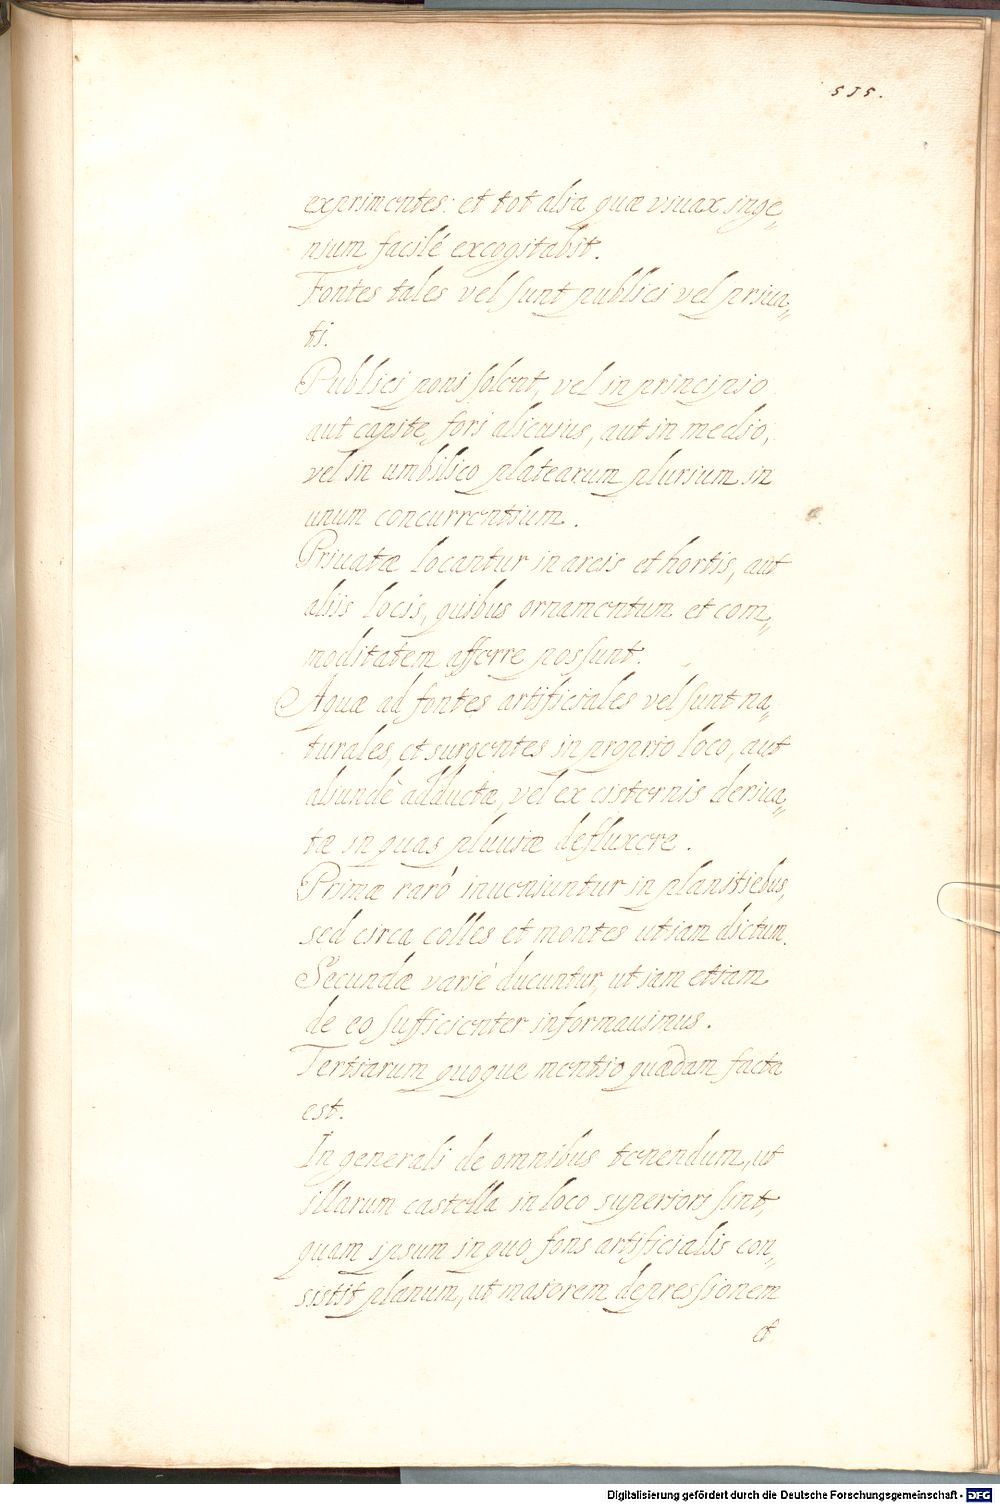 515.
exprimentes: et tot alia quæ viuax inge„
nium facilé excogitabit.
Fontes tales vel sunt publici vel priua„
ti.
Publici poni solent, vel in principio
aut capite fori alicuius, aut in medio,
vel in umbilico platearum plurium in
unum concurrentium.
Priuatæ locantur in arcis et hortis, aut
aliis locis, quibus ornamentum et com„
moditatem afferre possunt.
Aquæ ad fontes artificiales vel sunt na„
turales, et surgentes in proprio loco, aut
aliundè adductæ, vel ex cisternis deriua„
tæ in quas pluuiæ defluxere.
Primæ raró inueniuntur in planitiebus,
sed circa colles et montes ut iam dictum.
Secundæ variè ducuntur, ut iam etiam
de eo sufficienter informauimus.
Tertiarum quoque mentio quædam facta
est.
In generali de omnibus tenendum, ut
illarum castella in loco superiori sint,
quam ipsum in quo fons artificialis con„
sistit planum, ut maiorem depressionem
et
Digitalisierung gefördert durch die Deutsche Forschungsgemeinschaft - DFG